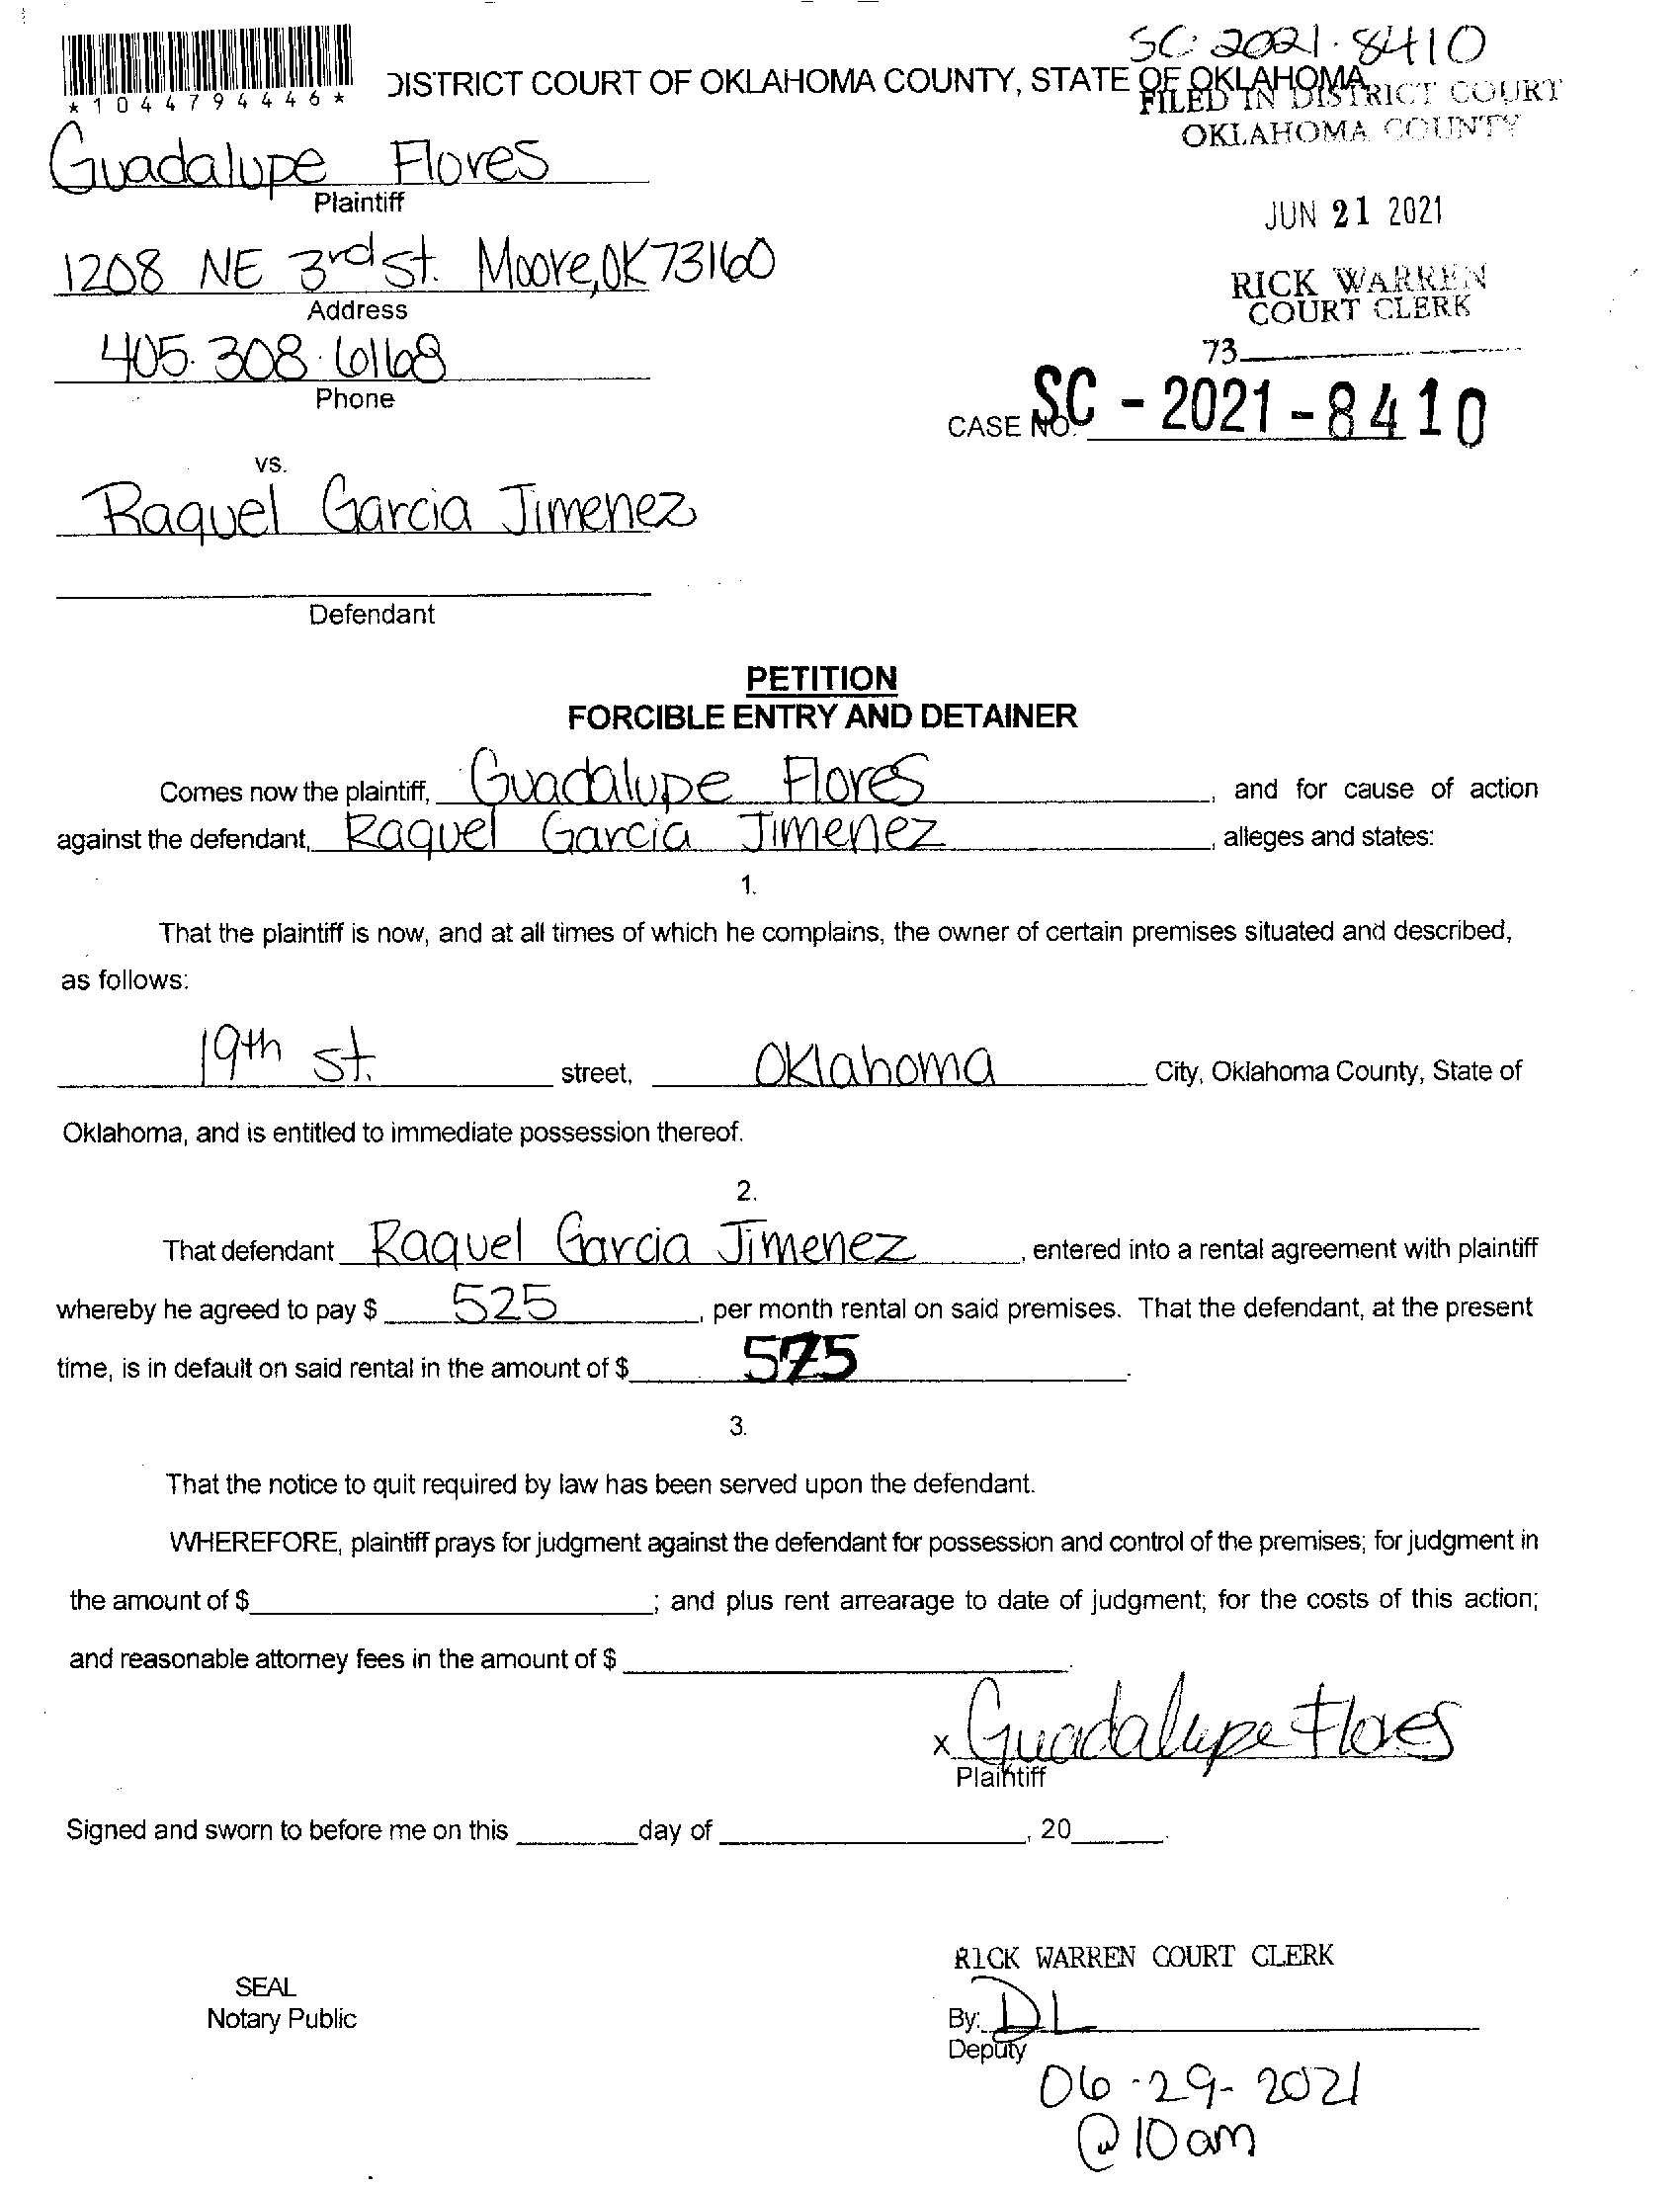 SC-2021-8410
*1044794446*
DISTRICT COURT OF OKLAHOMA COUNTY, STATE OF OKLAHOMA
FILED IN DISTRICT COURT
OKLAHOMA COUNTY
Guadalupe Flores
Plaintiff
JUN 21 2021
1208 NE 3rd St. Moore, OK 73160
Address
RICK WARREN
COURT CLERK
405.308.6168
Phone
73
CASE NO. SC-2021-8410
vs.
Raquel Garcia Jimenez
Defendant
PETITION
FORCIBLE ENTRY AND DETAINER
Comes now the plaintiff, Guadalupe Flores, and for cause of action
against the defendant, Raquel Garcia Jimenez, alleges and states:
1.
That the plaintiff is now, and at all times of which he complains, the owner of certain premises situated and described,
as follows:
19th St. street, Oklahoma City, Oklahoma County, State of
Oklahoma, and is entitled to immediate possession thereof.
2.
That defendant Raquel Garcia Jimenez, entered into a rental agreement with plaintiff
whereby he agreed to pay $ 525, per month rental on said premises. That the defendant, at the present
time, is in default on said rental in the amount of $ 575.
3.
That the notice to quit required by law has been served upon the defendant.
WHEREFORE, plaintiff prays for judgment against the defendant for possession and control of the premises; for judgment in
the amount of $ ; and plus rent arrearage to date of judgment; for the costs of this action;
and reasonable attorney fees in the amount of $ .
x Guadalupe Flores
Plaintiff
Signed and sworn to before me on this day of , 20 .
RICK WARREN COURT CLERK
SEAL
Notary Public
By: DL
Deputy
06-29-2021
@ 10 am